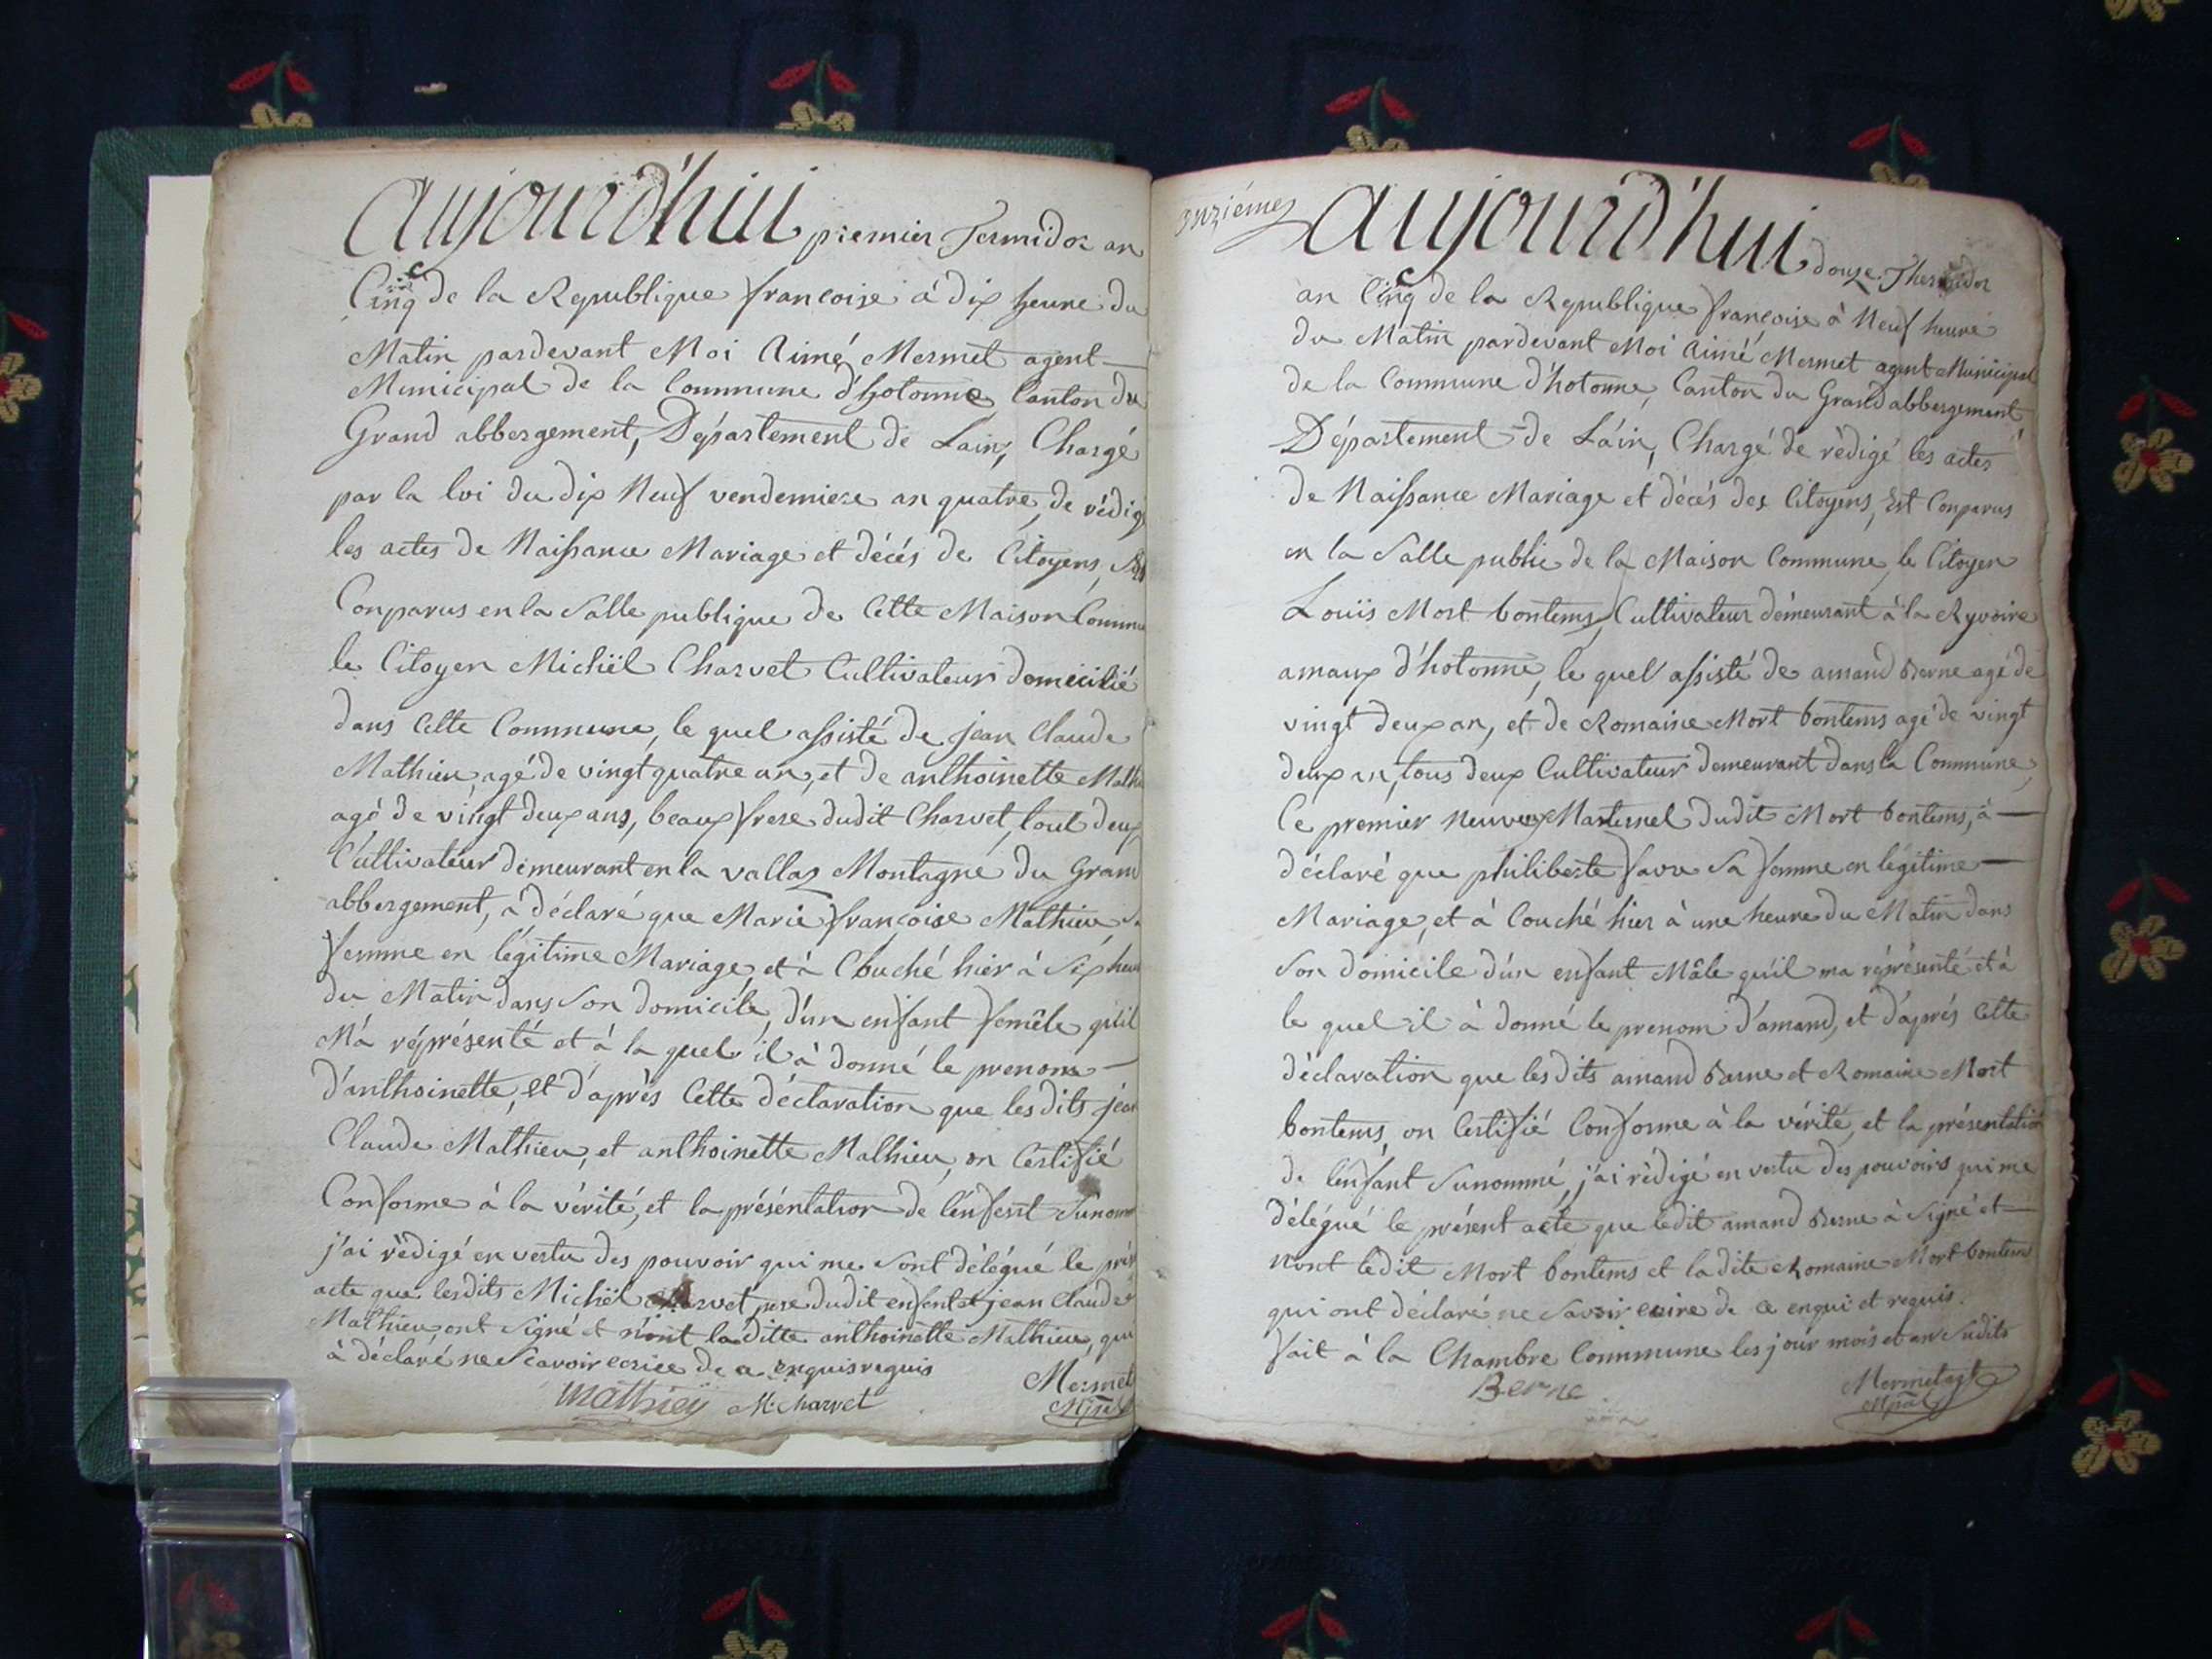 Aujourd'hui premier Termidor an
Cinq de la Republique françoise à dix heure du
Matin pardevant Moi Aimé Mermet agent
Municipal de la Commune d'hotonne, Canton du
Grand abbergement, Département de Lain, Chargé
par la loi du dix Neuf vendemiere an quatre, de rédigé
les actes de Naissance Mariage et décés de Citoyens,
Conparus en la Salle publique de Cette Maison Commune
le Citoyen Michiël Charvet Cultivateur domicilié
dans Cette Commune, le quel assisté de jean Claude
Mathieu, agé de vingt quatre an, et de anthoinette Mathieu
agé de vingt deux ans, beaux frere dudit Charvet, tout deux
Cultivateur demeurant en la vallaz Montagne du Grand
abbergement, à déclaré que Marie françoise Mathieu, sa
femme en légitime Mariage, et à Couché hier à Six heure
du Matin dans Son domicile, d'un enfant femêle qu'il
M'a réprésenté et à la quel il à donné le prenom
d'anthoinette, et d'après Cette déclaration que les dits jean
Claude Mathieu, et anthoinette Mathieu, on Certifié
Conforme à la vérité, et la présentation de l'enfent Sunomé
j'ai rédigé en vertu des pouvoir qui me Sont délégué le prés
acte que lesdits Michiël Charvet pere dudit enfent et jean Claude
Mathieu, ont Signé et n'ont la ditte anthoinette Mathieu, qui
à déclaré ne Scavoir ecrire de ce enquis requis
Mathieu M. Charvet Mermet
Mpal
onziéme Aujourd'hui douze Thermidor
an Cinq de la Republique françoise à Neuf heure
du Matin pardevant Moi Aimé Mermet agent Municipal
de la Commune d'hotonne, Canton du Grand abbergement,
Département de Láin, Chargé de rédigé les actes
de Naissance Mariage et décés des Citoyens, Est Conparus
en la Salle public de la Maison Commune, le Citoyen
Louis Mort bontems, Cultivateur démeurant à la Ryvoire
amaux d'hotonne, le quel assisté de amand Berne agé de
vingt deux an, et de Romaine Mort bontems agé de vingt
deux an, tous deux Cultivateur demeurant dans la Commune,
Ce premier Neuveux Marternel dudit Mort bontems, à
déclaré que philiberte favre Sa femme en légitime
Mariage, et à Couché hier à une heure du Matin dans
Son domicile d'un enfant Mâle qu'il ma réprésenté et à
le quel il à donné le prenom d'amand, et d'aprés Cette
déclaration que les dits amand Berne et Romaine Mort
bontems, on Certifié Conforme à la vérité, et la présentation
de l'enfant Sunommé, j'ai rédigé en vertu des pouvoirs qui me
délégué le présent acte que ledit amand Berne à Signé et
nont ledit Mort bontems et la dite Romaine Mort bontems
qui ont déclaré ne Savoir ecrire de ce enqui et requis.
fait à la Chambre Commune les jour mois et an Sudits
Berne Mermet agt
Mpal